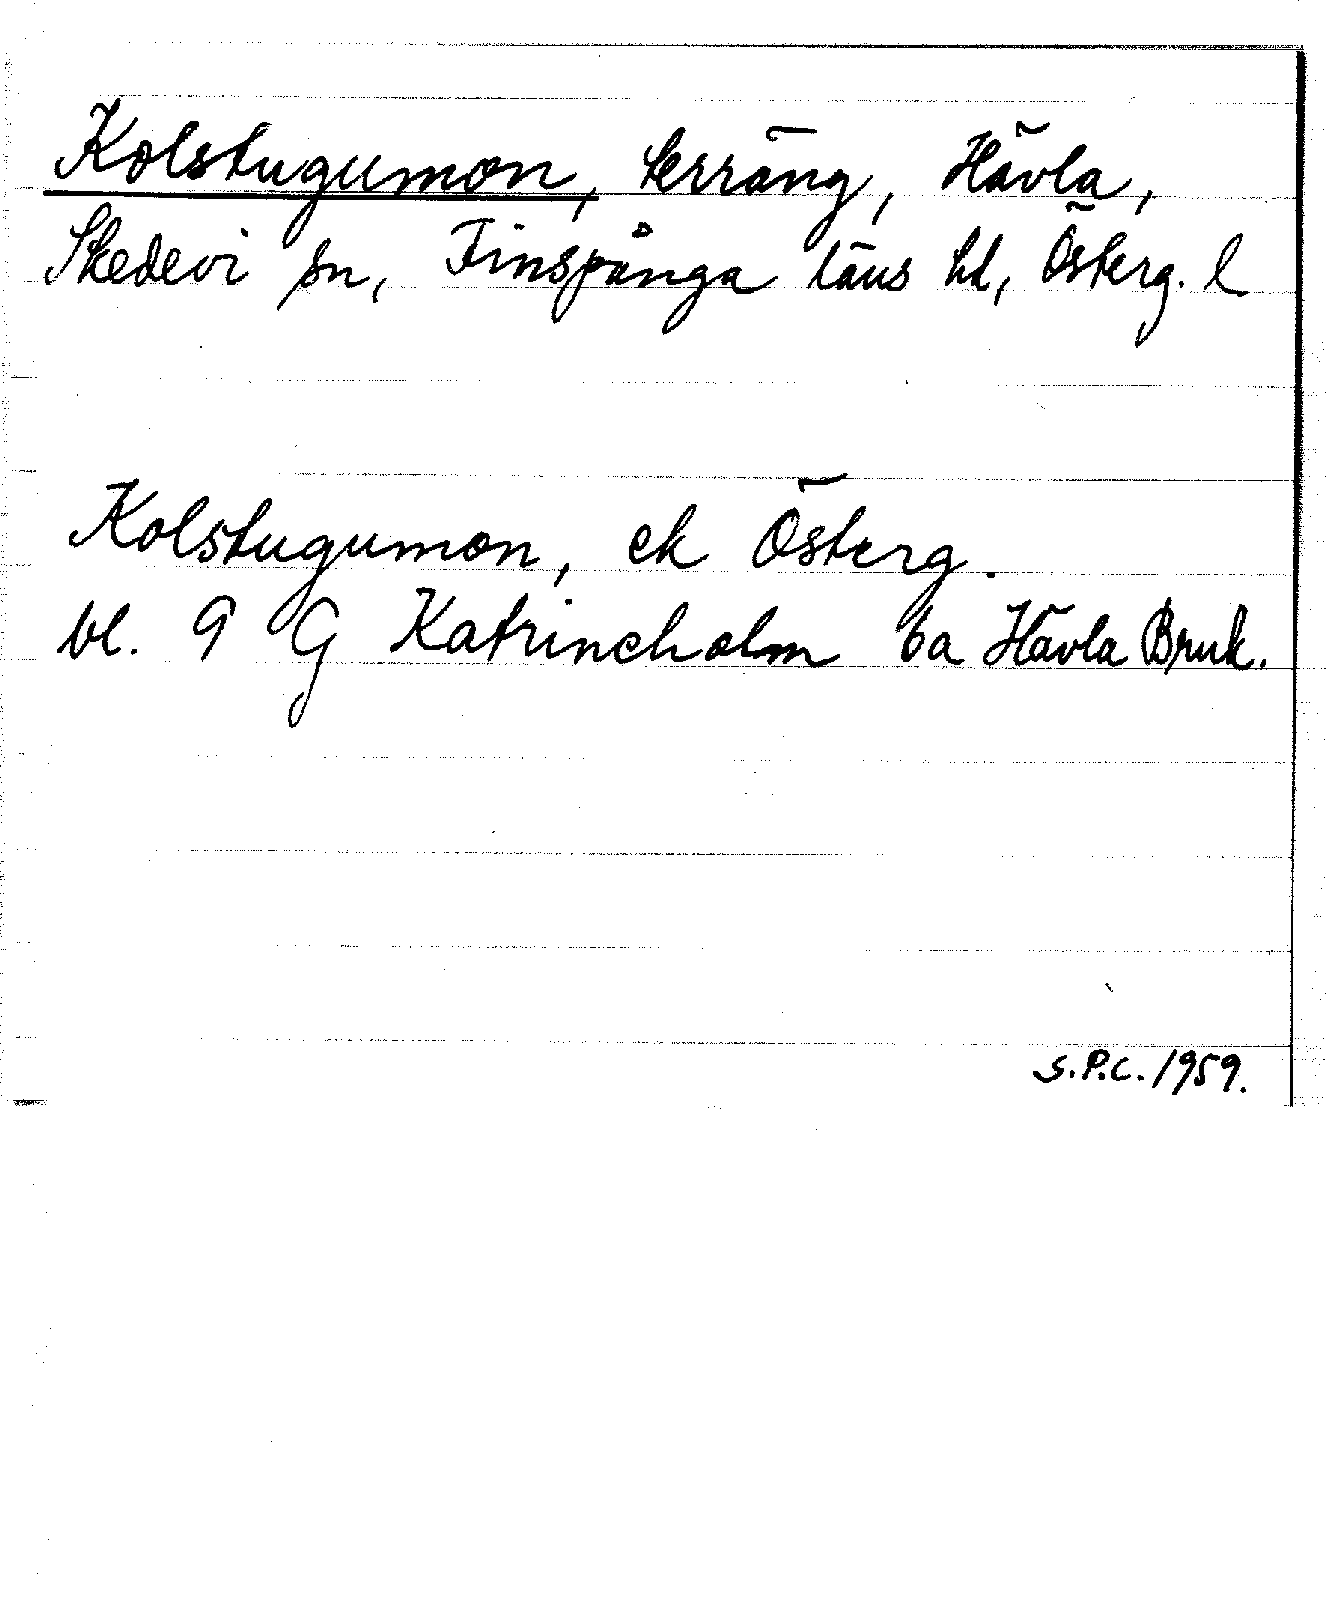 Kolstugumon, terräng, Hävla,
Skedevi sn, Finspånga läns hd, Österg. l
Kolstugumon, ek Österg.
bl. 9 G Katrineholm ba Hävla Bruk.
S.P.C. 1959.